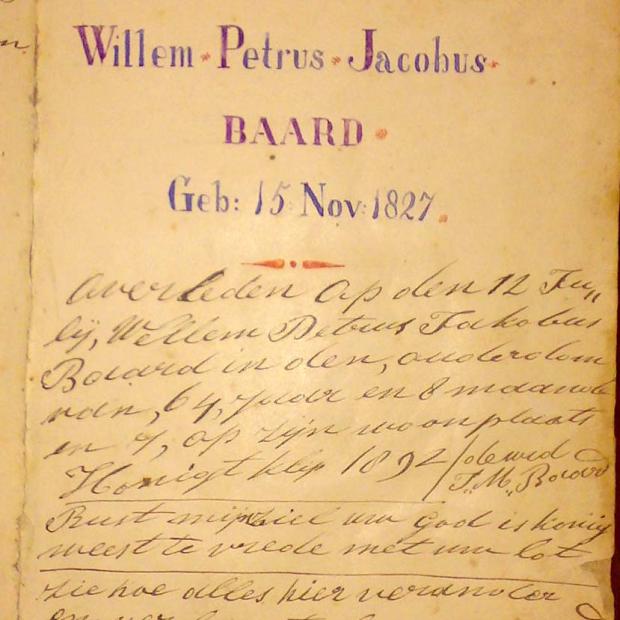 Willem Petrus Jacobus
BAARD
Geb: 15 Nov: 1827.
overleden op den 12 Ju„
ly, Willem Petrus Jakobus
Baard in den, ouderdom
van, 64, jaar en 8 maande
en 7, op zijn woonplaats
Honigt klip 1892 / de wed
J. M. Baard
Rust mijn ziel uw god is konig
weest te vrede met uw lot
zie hoe alles hier verander